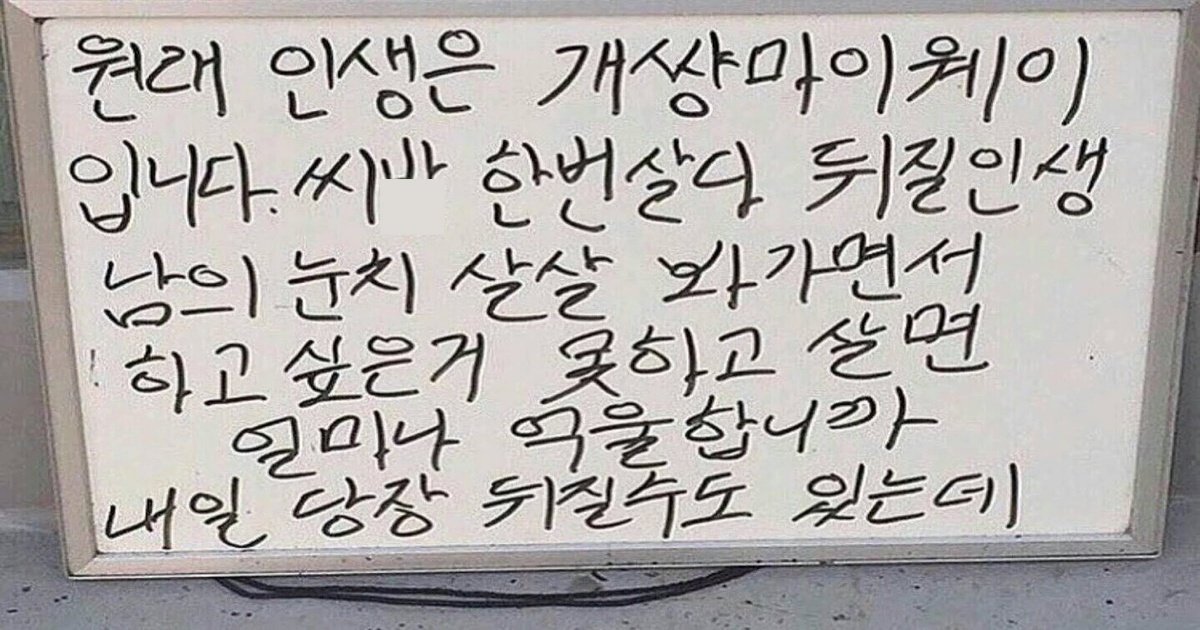 원래 인생은 개썅마이웨이
입니다. 씨바 한번살다 뒤질인생
남의 눈치 살살 봐가면서
하고 싶은거 못하고 살면
얼마나 억울합니까
내일 당장 뒤질수도 있는데